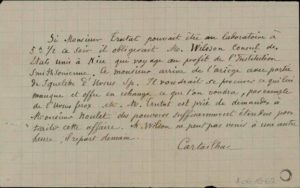 Si Monsieur Trutat pouvait être au laboratoire à
5 h ½ ce soir il obligerait M. Wilson Consul des
Etats unis à Nice qui voyage au profit de l'Institution
Smithsonienne. Ce monsieur arrive de l'ariège avec partie
de squelette d'Ursus Sp. Il voudrait se procurer ce qui lui
manque et offre en échange ce que l'on voudra, par exemple
de l'Ursus ferox etc. M. Trutat est prié de demander à
Monsieur Noulet des pouvoirs suffisamment étendus pour
traiter cette affaire. M. Wilson ne peut pas venir à une autre
heure. Il repart demain.
Cartailhac